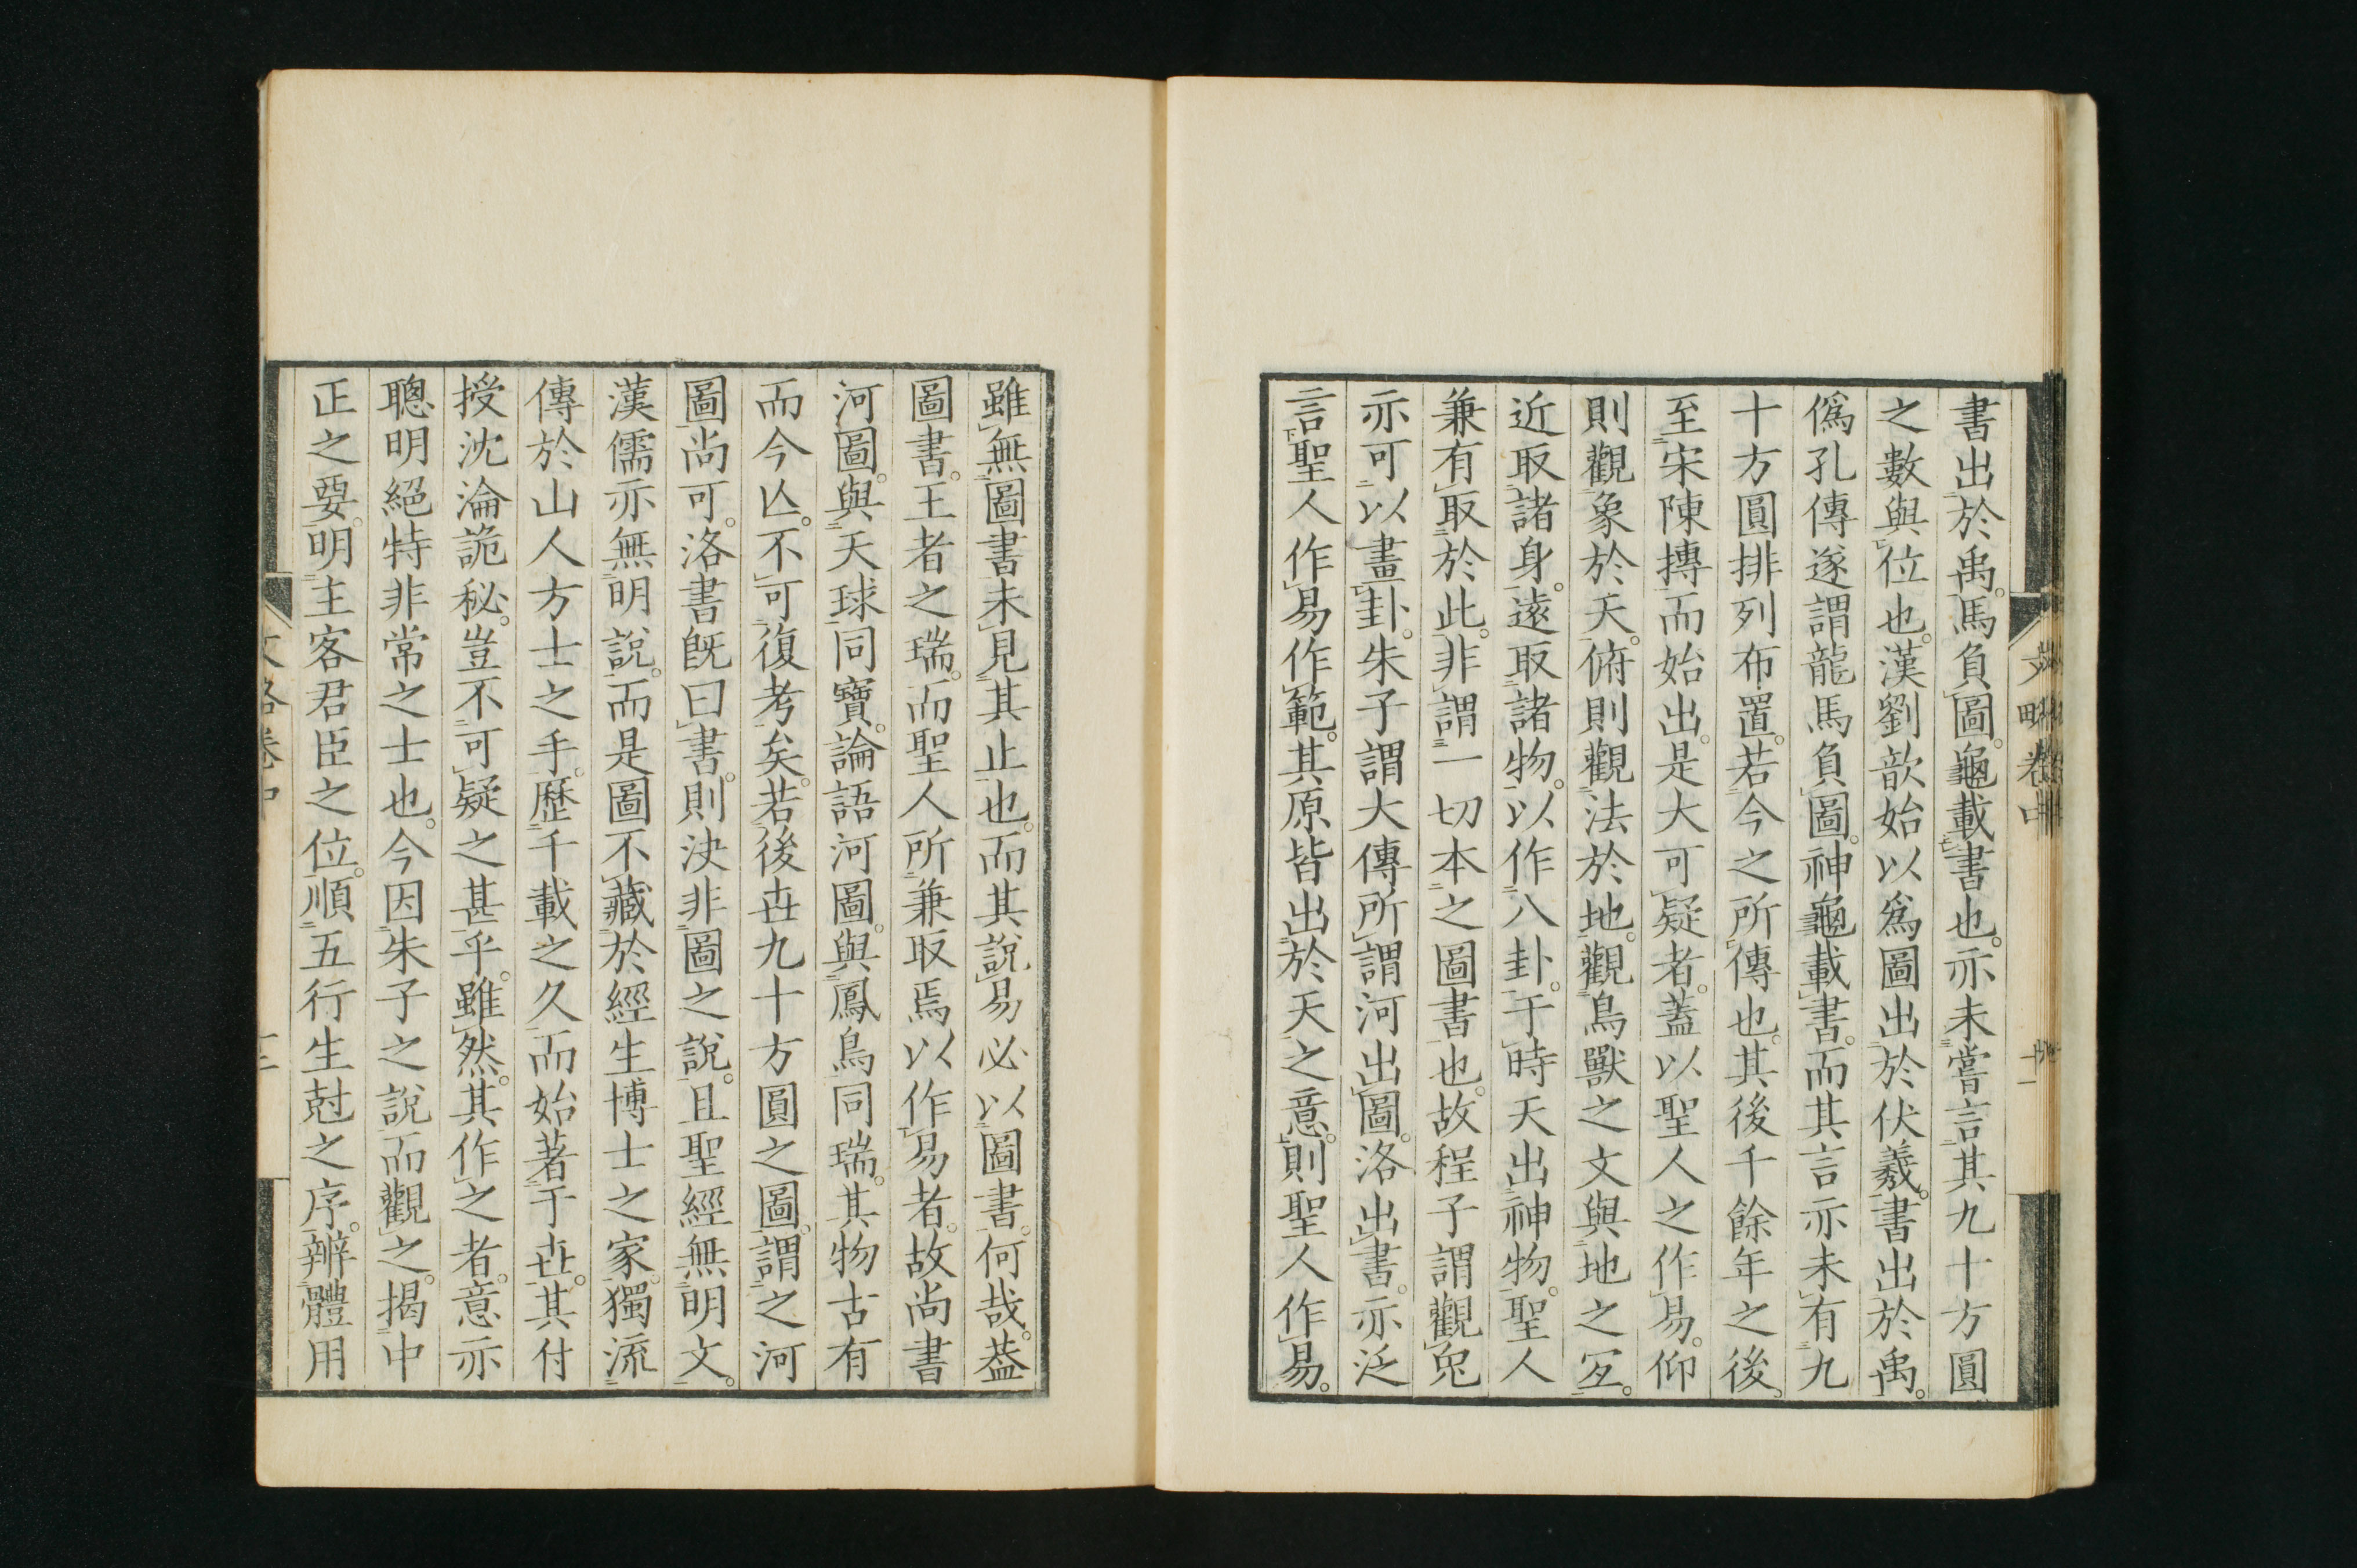 書出於禹。馬負圖。龜載書也。亦未嘗言其九十方圓
之數與位也。漢劉歆始以爲圖出於伏羲。書出於禹。
僞孔傳遂謂龍馬負圖。神龜載書。而其言亦未有九
十方圓排列布置。若今之所傳也。其後千餘年之後。
至宋陳摶而始出。是大可疑者。蓋以聖人之作易。仰
則觀象於天。俯則觀法於地。觀鳥獸之文與地之宜。
近取諸身。遠取諸物。以作八卦。于時天出神物。聖人
兼有取於此。非謂一切本之圖書也。故程子謂觀兔
亦可以畫卦。朱子謂大傳所謂河出圖。洛出書。亦泛
言聖人作易作範。其原皆出於天之意。則聖人作易。
文略卷中
十一
雖無圖書未見其止也。而其說易必以圖書。何哉。葢
圖書。王者之瑞。而聖人所兼取焉以作易者。故尚書
河圖。與天球同寶。論語河圖。與鳳鳥同瑞。其物古有
而今亾。不可復考矣。若後世九十方圓之圖。謂之河
圖尚可。洛書旣曰書。則決非圖之說。且聖經無明文。
漢儒亦無明說。而是圖不藏於經生博士之家。獨流
傳於山人方士之手。歷千載之久而始著于世。其付
授沈淪詭秘。豈不可疑之甚乎。雖然。其作之者。意亦
聰明絕特非常之士也。今因朱子之說而觀之。揭中
正之要。明主客君臣之位。順五行生尅之序。辨體用
文略卷中
十二